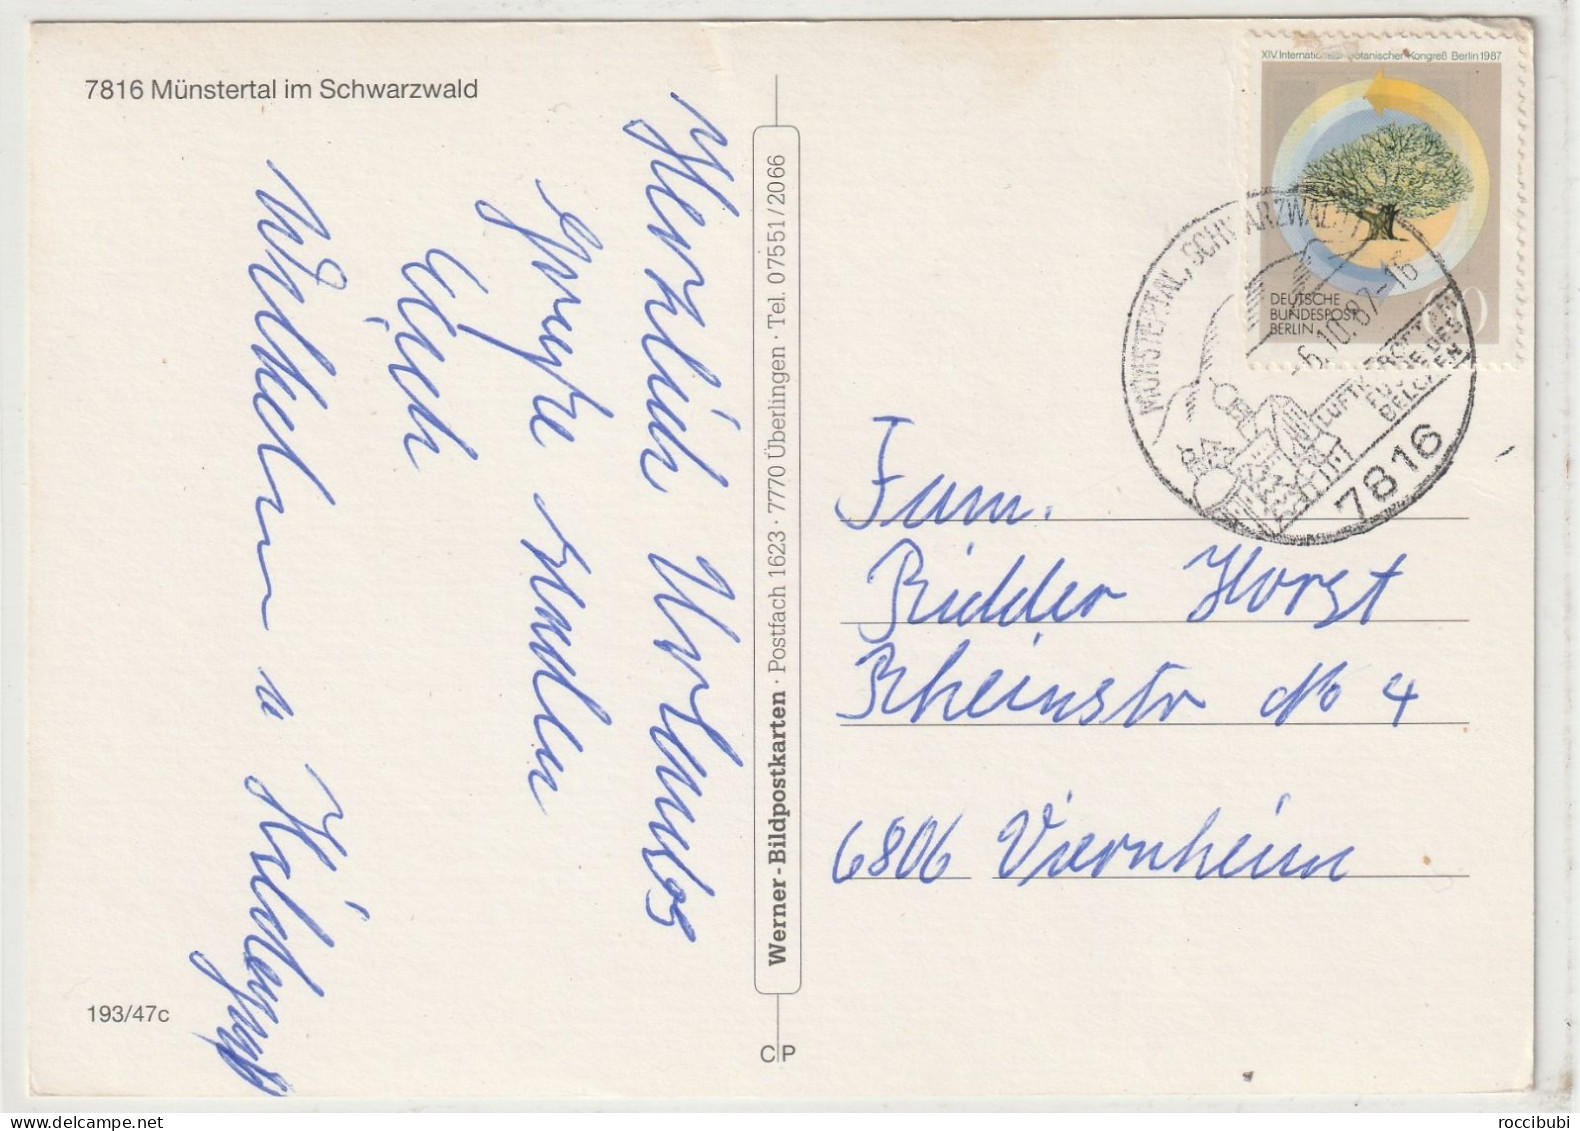 7816 Münstertal im Schwarzwald
Herzlich Urlaubs
Grüße senden
Euch
Wilhelm u
193/47c
Werner-Bildpostkarten · Postfach 1623 · 7770 Überlingen · Tel. 07551/2066
C P
XIV. Internationaler Botanischer Kongreß Berlin 1987
DEUTSCHE
BUNDESPOST
BERLIN
60
MÜNSTERTAL, SCHWARZWALD 1
-6.10.87-16
LUFTKURORT AM
FUSSE DES
BELCHEN
7816
Fam.
Ridder Horst
Rheinstr No 4
6806 Viernheim
roccibubi